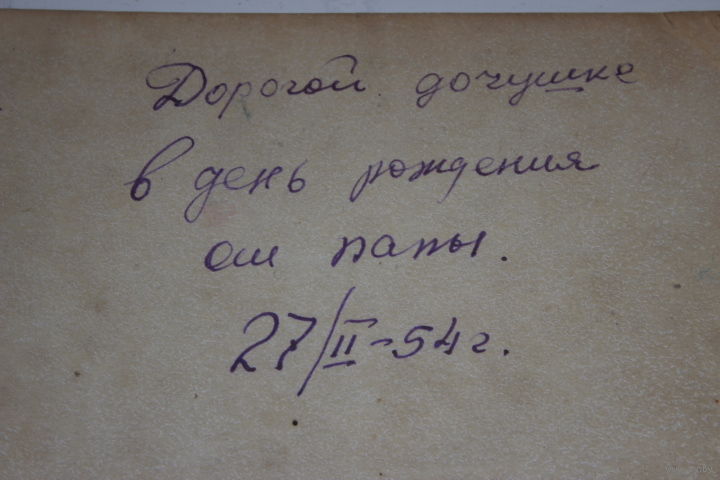 Дорогой дочушке
в день рождения
от папы.
27/II-54 г.